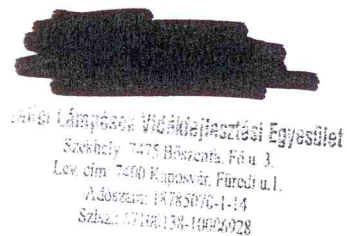 Lámpások Vidékfejlesztési Egyesület
Székhely: 7475 Bőszénfa, Fő u. 3.
Lev. cím: 7400 Kaposvár, Füredi u.1.
Adószám: 18785070-1-14
Szlsz.: 67100138-10006928